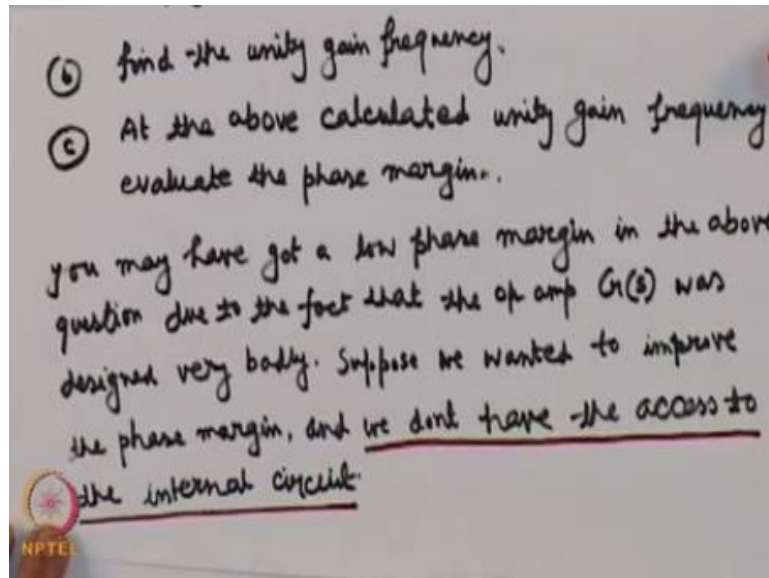 (b) find the unity gain frequency.
(c) At the above calculated unity gain frequency
evaluate the phase margin..
you may have got a low phase margin in the above
question due to the fact that the op amp G(s) was
designed very badly. Suppose we wanted to improve
the phase margin, and we dont have the access to
the internal circuit.
NPTEL